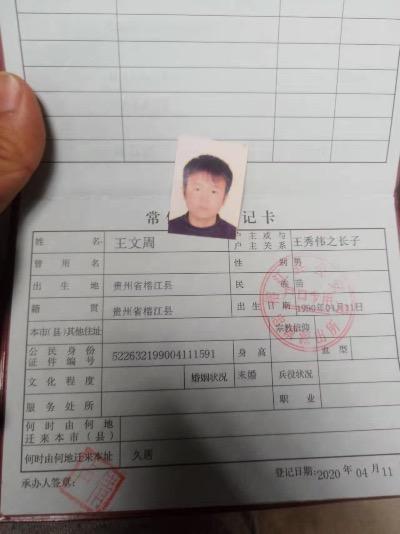 常 记 卡
姓 名 王文周 户主或与户主关系 王秀伟之长子
曾用名 性 别 男
出生地 贵州省榕江县 民 族 苗
籍 贯 贵州省榕江县 出生日期 1990年04月11日
本市(县)其他住址 宗教信仰
公民身份证件编号 522632199004111591 身 高 血型
文化程度 婚姻状况 未婚 兵役状况
服务处所 职 业
何时由何地迁来本市(县)
何时由何地迁来本址 久居
承办人签章: 登记日期:2020年04月11